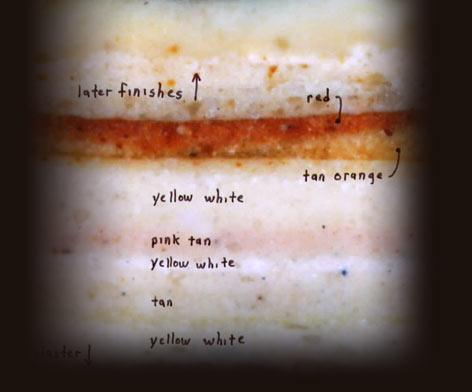 later finishes
red
tan orange
yellow white
pink tan
yellow white
tan
yellow white